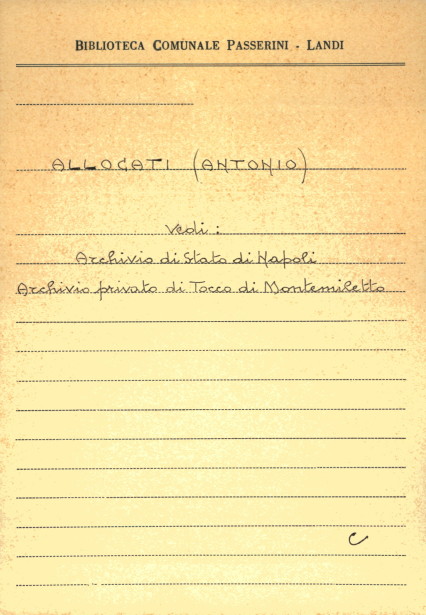 BIBLIOTECA COMUNALE PASSERINI - LANDI
ALLOCATI (ANTONIO)
Vedi:
Archivio di Stato di Napoli
Archivio privato di Tocco di Montemiletto
C